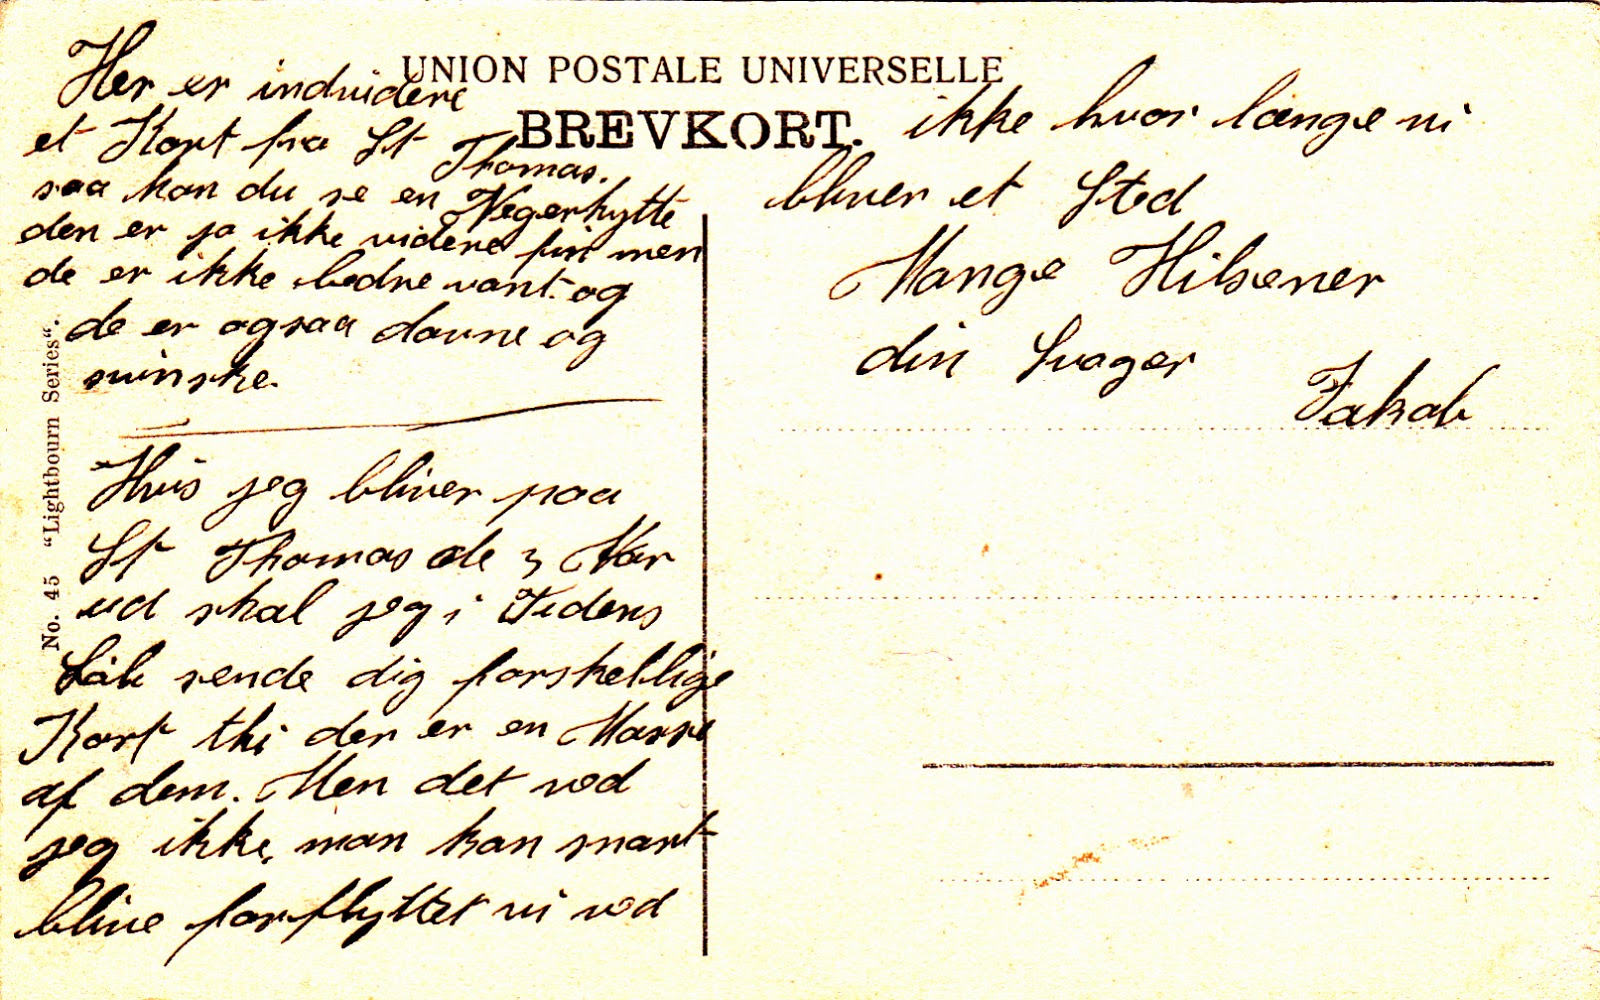 UNION POSTALE UNIVERSELLE
BREVKORT.
No. 45 “Lightbourn Series“.
Her er indvidere
et Kort fra St Thomas.
saa kan du se en Negerhytte
den er jo ikke videre fin men
de er ikke bedre vant og
de er ogsaa dovne og
svinske.
Hvis jeg bliver paa
St Thomas de 3 Aar
ud skal jeg i Tidens
Løb sende dig forskellige
Kort thi der er en Masse
af dem. Men det ved
jeg ikke, man kan snart
blive forflyttet vi ved
ikke hvor længe vi
bliver et Sted
Mange Hilsener
din Svager
Jakob